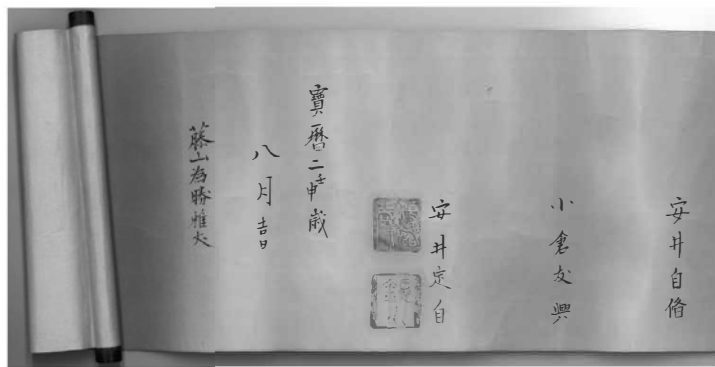 安井自脩
小倉友興
安井定自
寶暦二壬申歳
八月吉日
藤山為勝雅丈